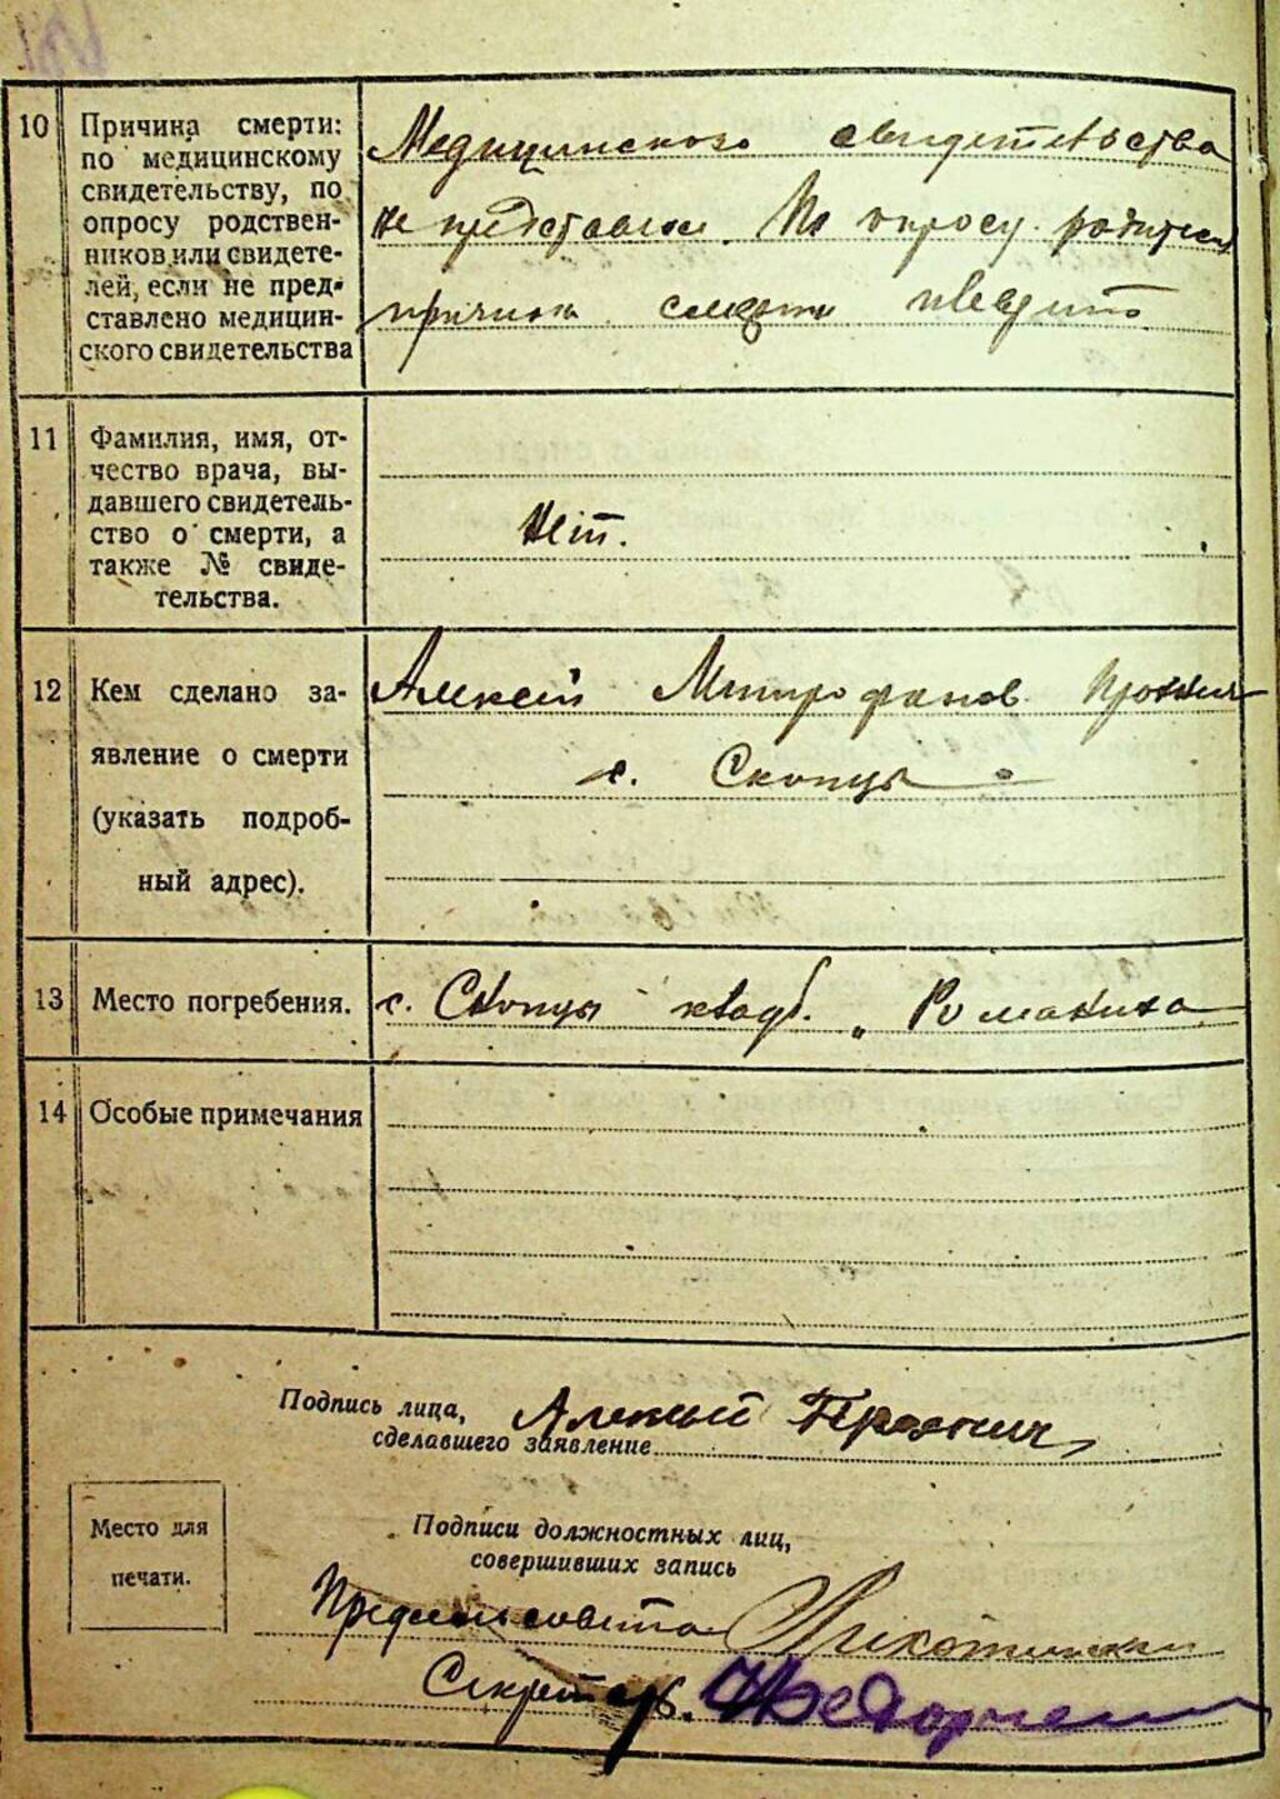 10 Причина смерти:
по медицинскому
свидетельству, по
опросу родствен-
ников или свидете-
лей, если не пред-
ставлено медицин-
ского свидетельства
Медицинского свидетельства
не представлен. По опросу
причина смерти
11 Фамилия, имя, от-
чество врача, вы-
давшего свидетель-
ство о смерти, а
также № свиде-
тельства.
Нет.
12 Кем сделано за-
явление о смерти
(указать подроб-
ный адрес).
Алексей Митрофанов
с. Скопцы
13 Место погребения.
с. Скопцы кладб. „ Романиха
14 Особые примечания
Подпись лица,
сделавшего заявление
Алексей
Место для
печати.
Подписи должностных лиц,
совершивших запись
Пред сельсовета
Секретарь.